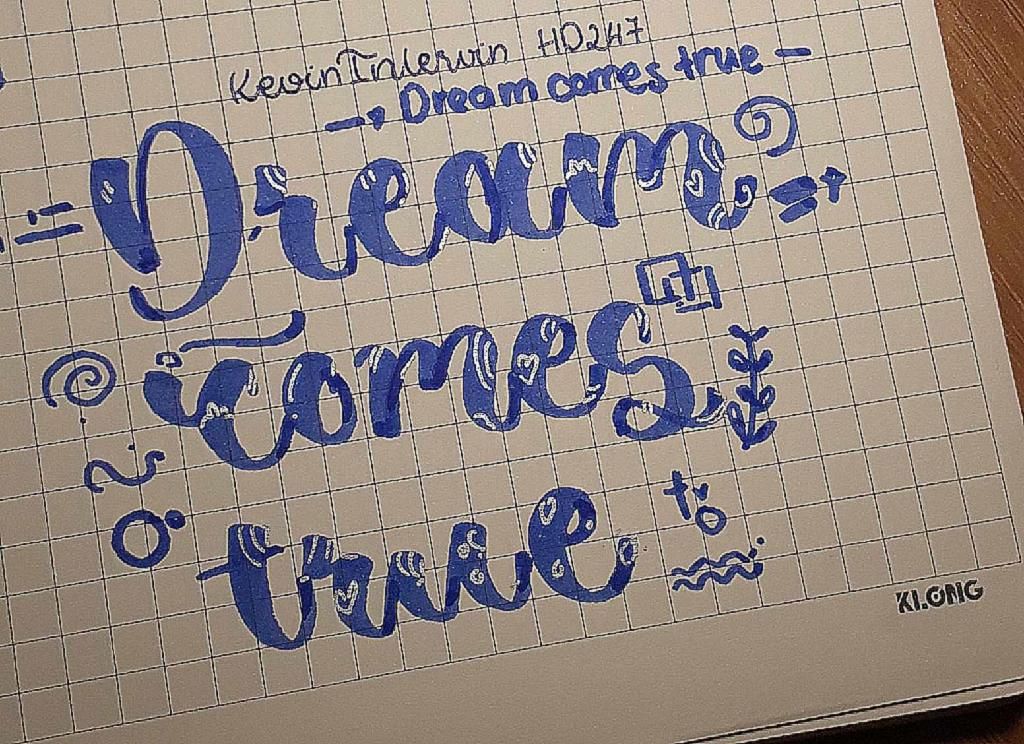 KevinInlerwin HD247
Dream comes true
Dream
comes
true
KLONG